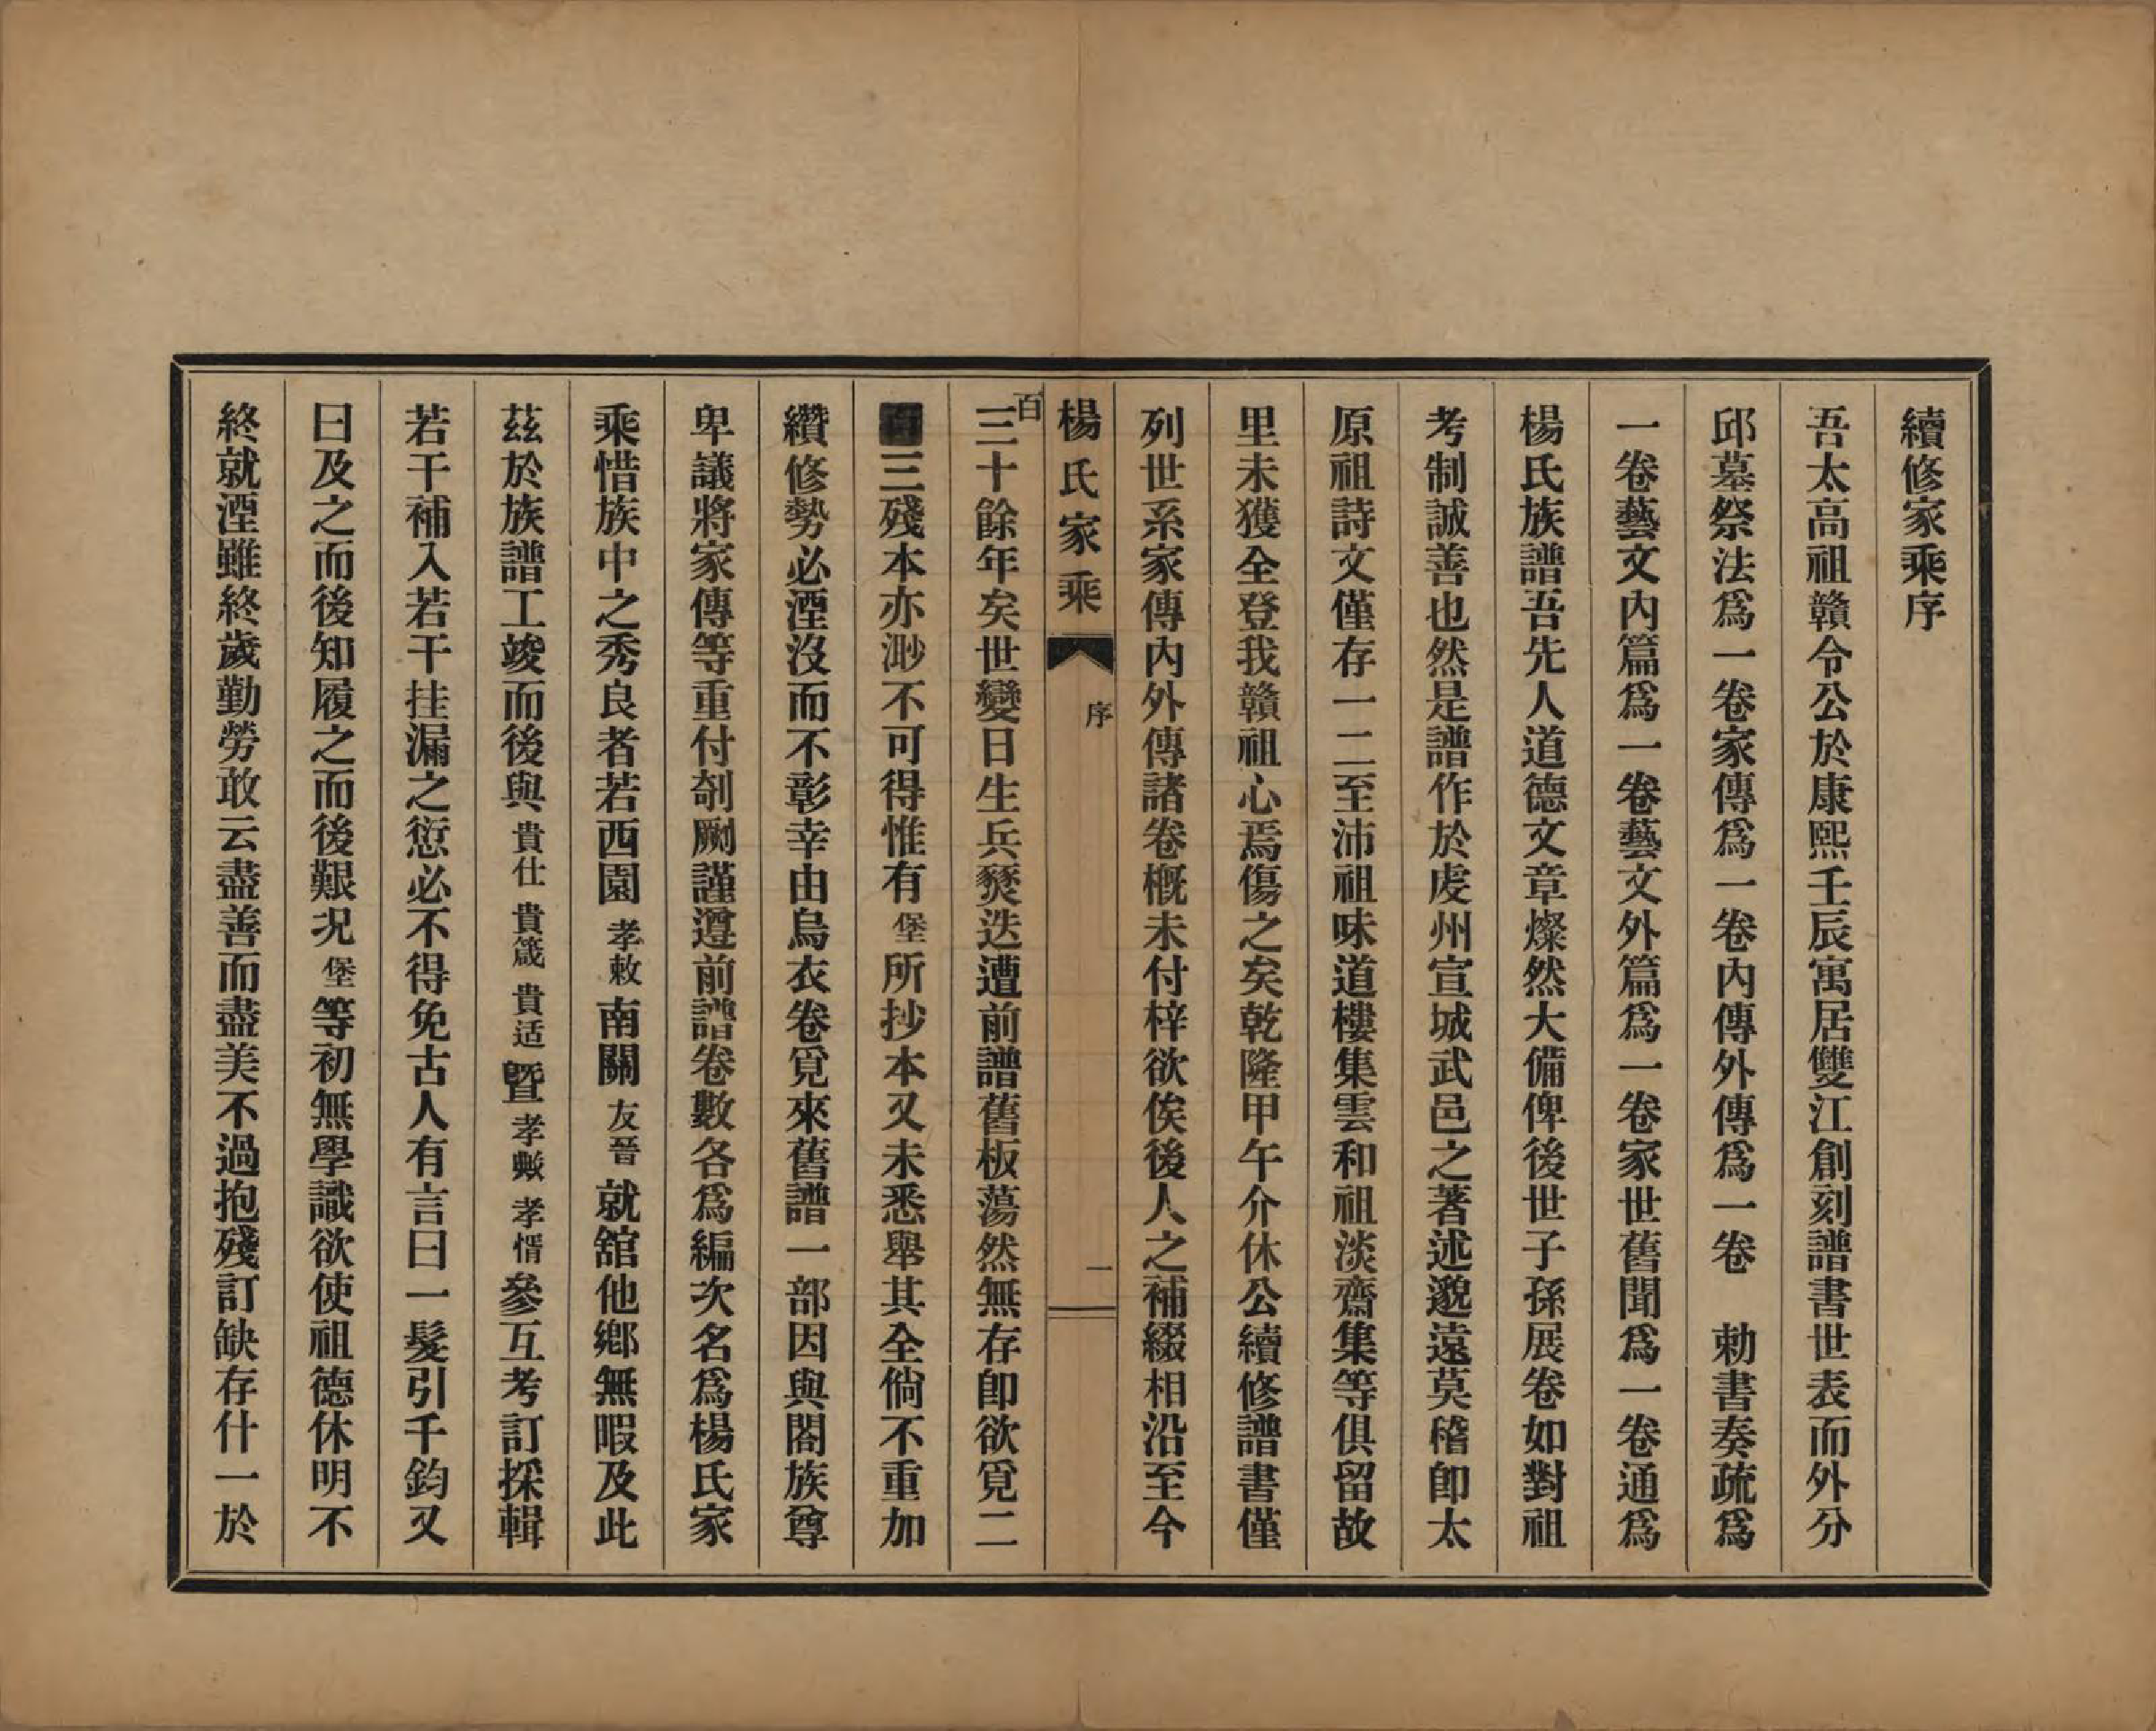 續修家乘序
吾太高祖贛令公於康熙壬辰寓居雙江創刻譜書世表而外分
邱墓祭法爲一卷家傳爲一卷內傳外傳爲一卷　勅書奏疏爲
一卷藝文內篇爲一卷藝文外篇爲一卷家世舊聞爲一卷通爲
楊氏族譜吾先人道德文章燦然大備俾後世子孫展卷如對祖
考制誠善也然是譜作於虔州宣城武邑之著述邈遠莫稽卽太
原祖詩文僅存一二至沛祖味道樓集雲和祖淡齋集等俱留故
里未獲全登我贛祖心焉傷之矣乾隆甲午介休公續修譜書僅
列世系家傳內外傳諸卷槪未付梓欲俟後人之補綴相沿至今
楊氏家乘
序
一
百
三十餘年矣世變日生兵燹迭遭前譜舊板蕩然無存卽欲覓二
三殘本亦渺不可得惟有堡所抄本又未悉舉其全倘不重加
纘修勢必湮沒而不彰幸由烏衣卷覓來舊譜一部因與閤族尊
卑議將家傳等重付剞劂謹遵前譜卷數各爲編次名爲楊氏家
乘惜族中之秀良者若西園孝敕南關友晉就舘他鄉無暇及此
茲於族譜工竣而後與貴仕貴箴貴适曁孝𣤶孝愲參互考訂採輯
若干補入若干挂漏之愆必不得免古人有言曰一髮引千鈞又
曰及之而後知履之而後艱况堡等初無學識欲使祖德休明不
終就湮雖終歲勤勞敢云盡善而盡美不過抱殘訂缺存什一於